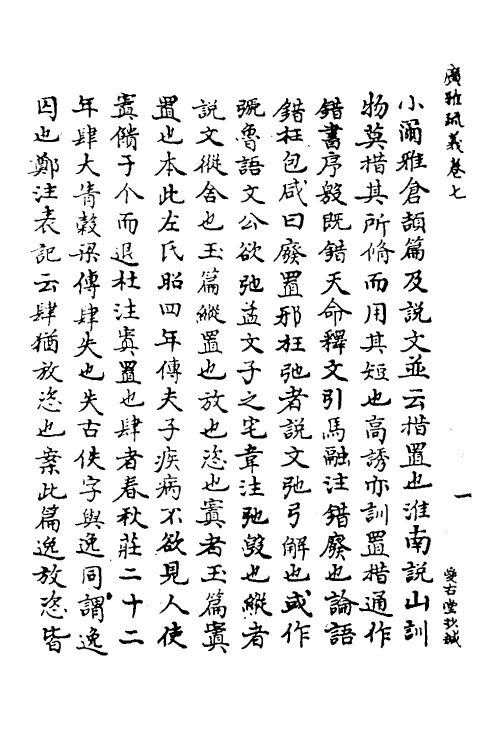 廣雅疏義卷七
小爾雅倉頡篇及說文並云措置也淮南說山訓
物莫措其所脩而用其短也高誘亦訓置措通作
錯書序殷既錯天命釋文引馬融注錯廢也論語
錯枉包咸曰廢置邪枉弛者說文弛弓解也或作
號魯語文公欲弛孟文子之宅韋注弛毀也縱者
說文縱舍也玉篇縱置也放也恣也寘者玉篇寘
置也本此左氏昭四年傳夫子疾病不欲見人使
寘饋于个而退杜注寘置也肆者春秋莊二十二
年肆大眚穀梁傳肆失也失古佚字與逸同謂逸
囚也鄭注表記云肆猶放恣也案此篇逸放恣皆
一
愛古堂抄